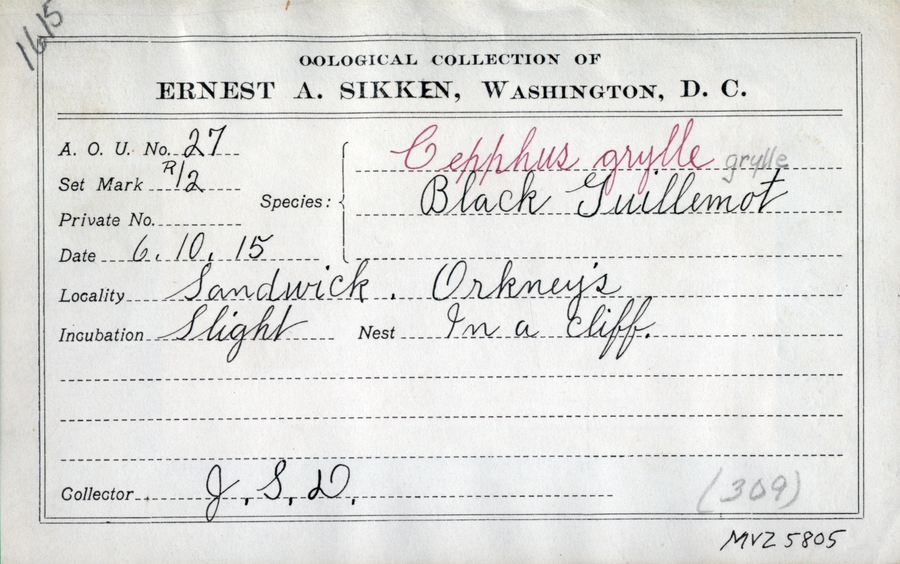 1615
OOLOGICAL COLLECTION OF
ERNEST A. SIKKEN, WASHINGTON, D. C.
A. O. U. No. 27
Set Mark R/2
Private No.
Date 6. 10. 15
Species: Cepphus grylle grylle
Black Guillemot
Locality Sandwick. Orkney's
Incubation Slight Nest In a cliff.
Collector J. S. D.
(309)
MVZ 5805